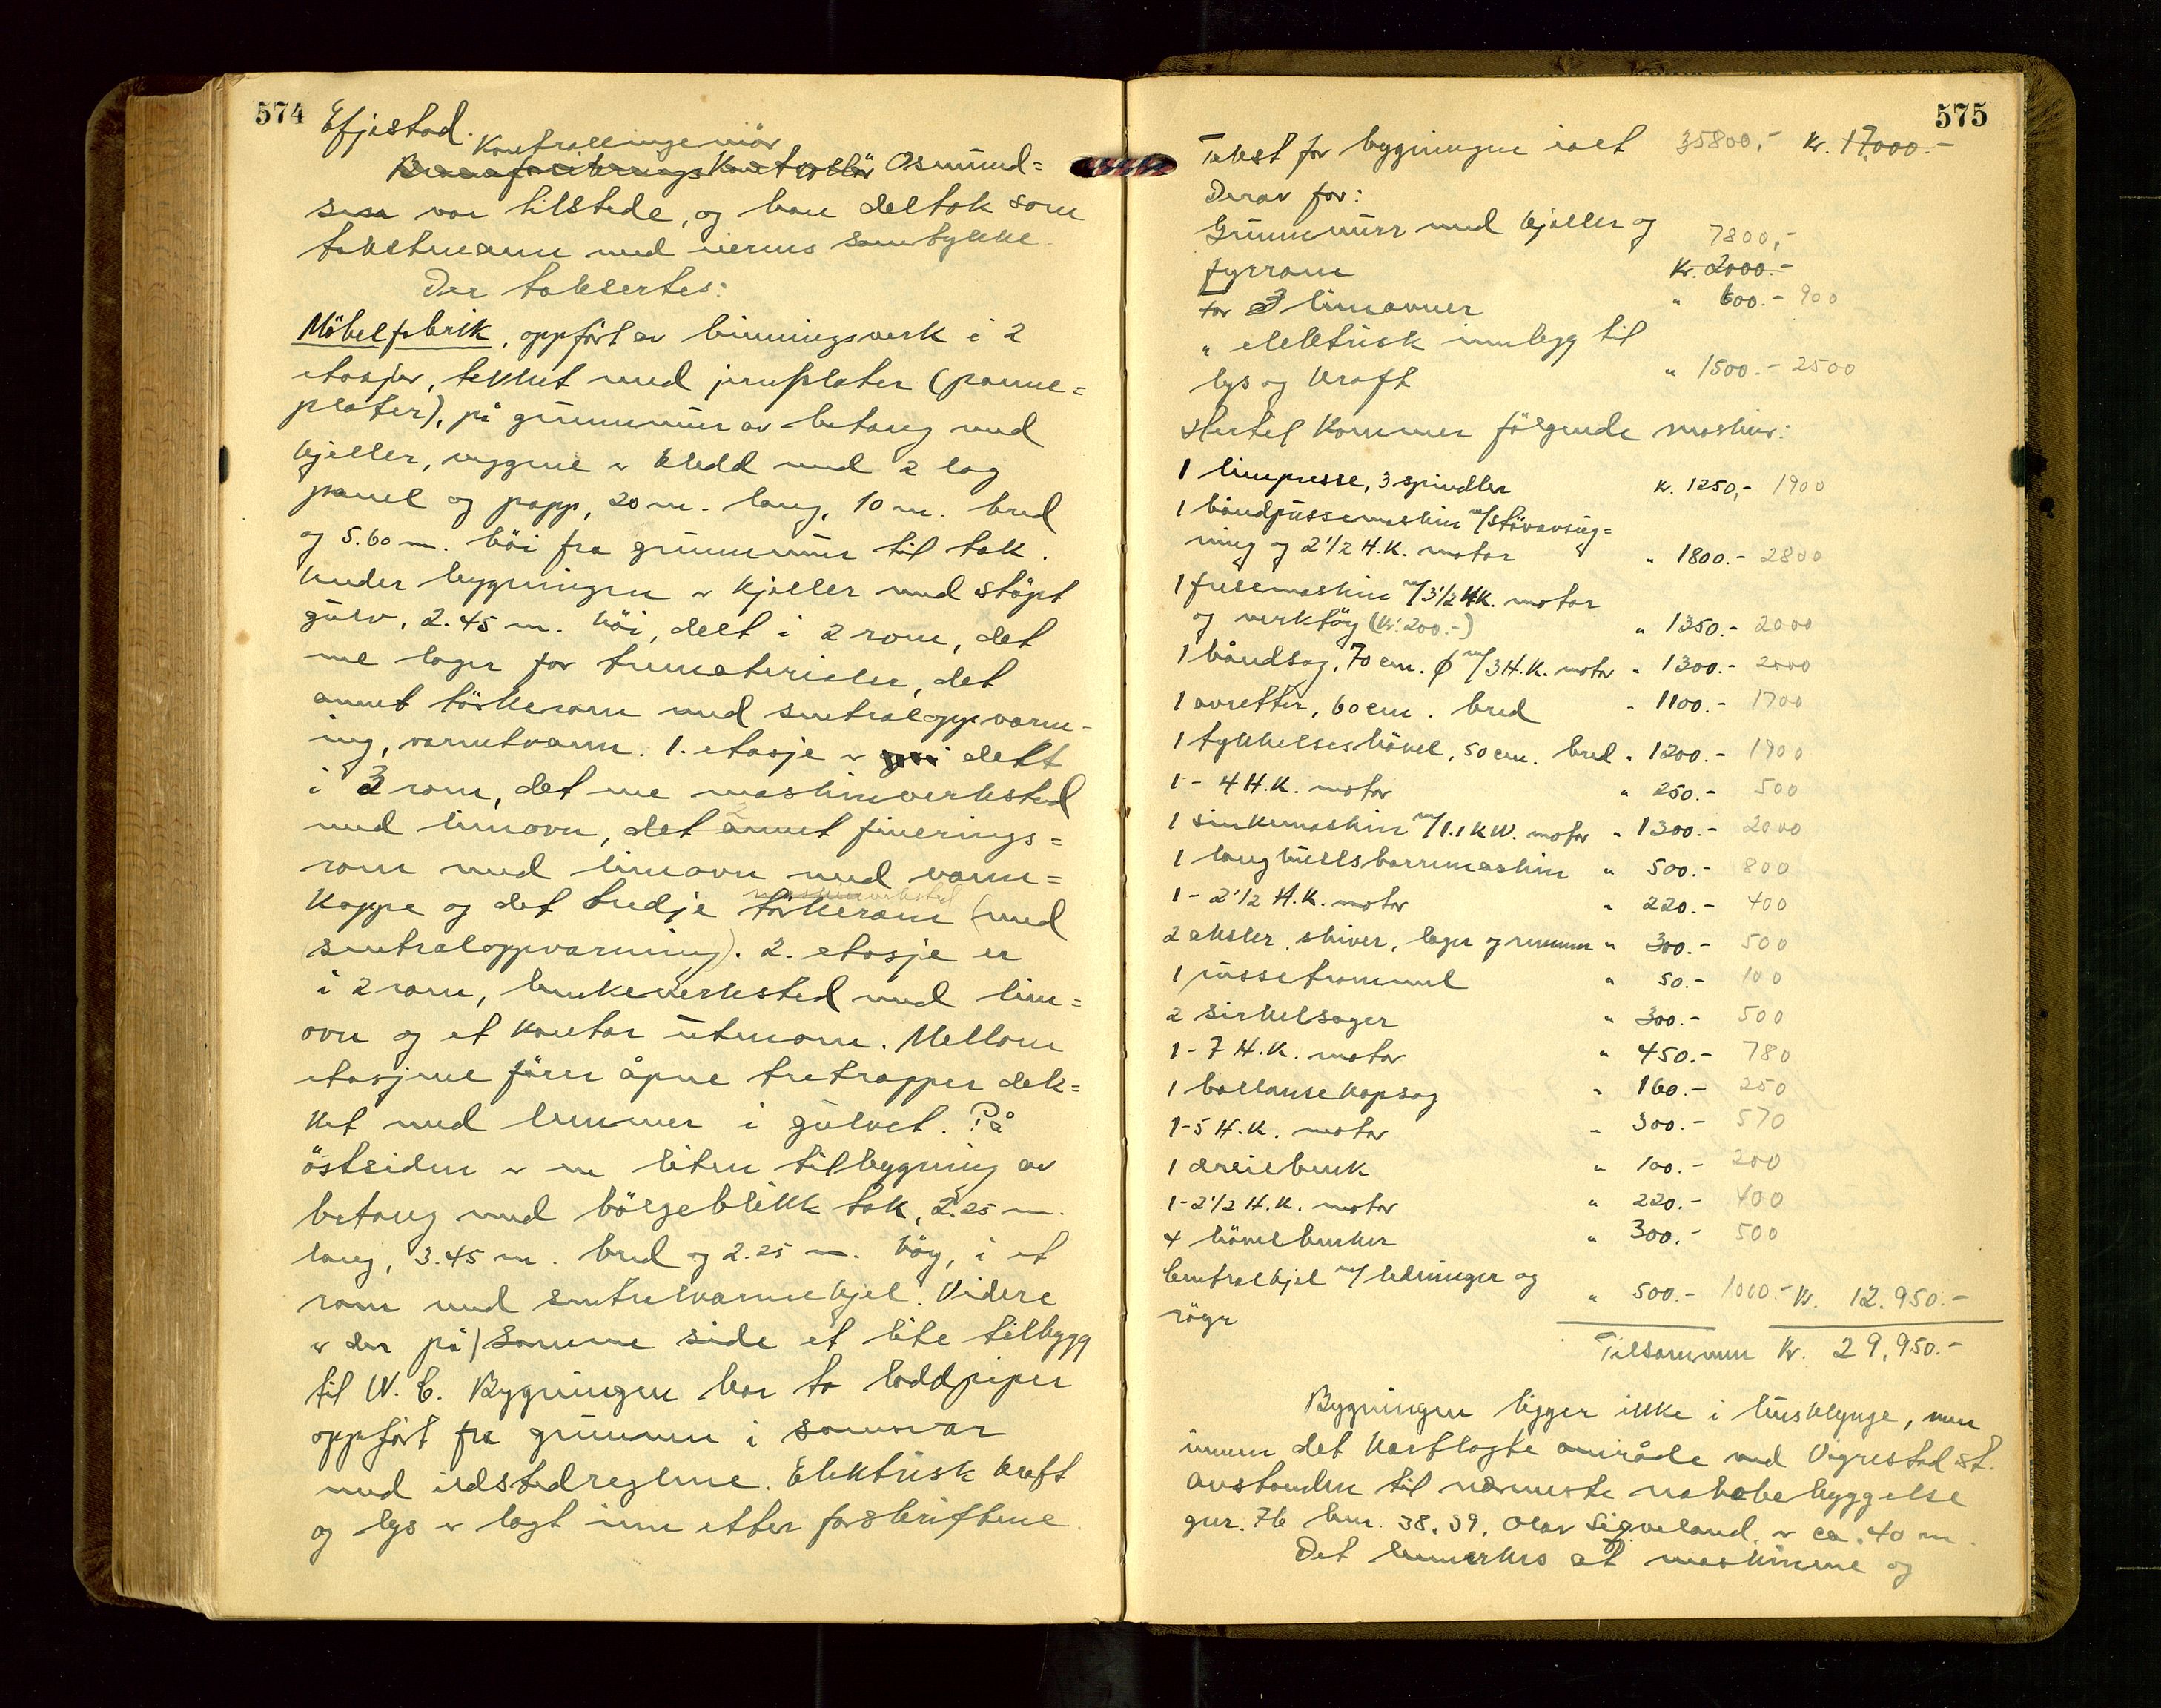 574
Efjestad.
Kontrollingeniör
Brannforsikringskontrollör Osmund-
sen var tilstede, og han deltok som
takstmann med eierens samtykke.
Der taksertes:
Möbelfabrik, oppfört av binningsverk i 2
etasjer, tekket med jernplater (panne-
plater), på grunnmur av betong med
kjeller, veggene er kledd med 2 lag
panel og papp, 20 m. lang, 10 m. bred
og 5.60 m. höi fra grunnmur til tak.
Under bygningen er kjeller med stöpt
gulv, 2.45 m. höi, delt i 2 rom, det
ene lager for trematerialer, det
annet törkerom med sentraloppvarm-
ing, varmtvann. 1. etasje er delt
i 3 rom, det ene maskinverksted
med limovn, det annet finerings-
rom med limovn med varm-
maskinverksted
kappe og det tredje törkerom (med
sentraloppvarming). 2. etasje er
i 2 rom, benkeverksted med lim-
ovn og et kontor utenom. Mellom
etasjene förer åpne tretrapper dek-
ket med lemmer i gulvet. På
östsiden er en liten tilbygning av
betong med bölgeblikk tak, 2.25 m.
lang, 3.45 m. bred og 2.25 m. höy, i et
rom med sentralvarmekjel. Videre
er der på samme side et lite tilbygg
til W. C. Bygningen har to loddpiper
oppfört fra grunnen i samsvar
med ildstedreglene. Elektrisk kraft
og lys er lagt inn etter forskriftene.
575
Takst for bygningen ialt 35800,- Kr. 17.000.-
Derav for:
Grunnmur med kjeller og 7800,-
fyrrom Kr. 2000.-
for 3 limovner " 600.- 900
" elektrisk innlegg til
lys og kraft " 1500.- 2500
Hertil kommer fölgende maskiner:
1 limpresse, 3 spindler Kr. 1250,- 1900
1 båndpussemaskin m/stövavsug-
ning og 2 1/2 H.K. motor " 1800.- 2800
1 fresemaskin m/3 1/2 H.K. motor
og verktöy (kr. 200.-) " 1350.- 2000
1 båndsag, 70 cm. ϕ m/3 H.K. motor " 1300.- 2000
1 avretter, 60 cm. bred " 1100.- 1700
1 tykkelseshövel, 50 cm. bred " 1200.- 1900
1 - 4 H.K. motor " 250.- 500
1 sinkemaskin m/1.1 KW. motor " 1300.- 2000
1 langhullsborremaskin " 500.- 800
1 - 2 1/2 H.K. motor " 220.- 400
2 aksler, skiver, lager og remmer " 300.- 500
1 pussetrommel " 50.- 100
2 sirkelsager " 300.- 500
1 - 7 H.K. motor " 450.- 780
1 ballansekapsag " 160.- 250
1 - 5 H.K. motor " 300.- 570
1 dreiebenk " 100.- 200
1 - 2 1/2 H.K. motor " 220.- 400
4 hövelbenker " 300.- 500
Centralkjel m/ ledninger og
" 500.- 1000.- Kr. 12.950.-
rögr
Tilsammen Kr. 29.950.-
Bygningen ligger ikke i husklynge, men
innen det kartlagte område ved Vigrestad st.
Avstanden til nærmeste nabobebyggelse
gnr. 76 bnr. 38, 39, Olav Sigveland, er ca. 40 m.
Det bemerkes at maskinene og